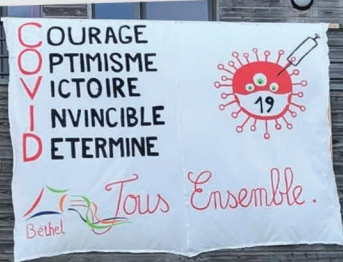 COURAGE
OPTIMISME
VICTOIRE
INVINCIBLE
DETERMINE
19
Tous Ensemble.
Béthel